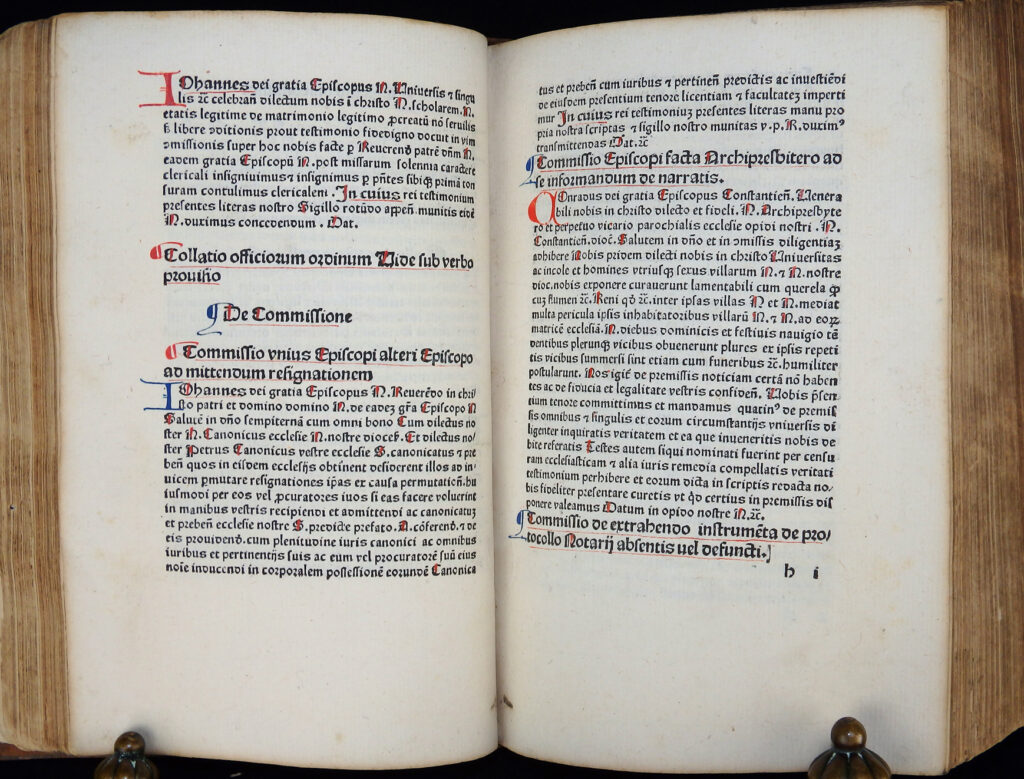 IOhannes dei gratia Episcopus N. Uniuersis ⁊ singu
lis ꝛc̄ celebran̄ dilectum nobis ī christo N. scholarem. N.
etatis legitime de matrimonio legitimo ꝓcreatū nō seruilis
sꝫ libere ɔditionis prout testimonio fidedigno docuit in vim
ɔmissionis super hoc nobis facte ꝑ Reuerend̄ patrē dn̄m N.
eadem gratia Episcopū N. post missarum solennia caractere
clericali insigniuimus et insignimus ꝑ pn̄tes sibiqꝫ primā ton
suram contulimus clericalem. In cuius rei testimonium
presentes literas nostro Sigillo rotūdo appen̄. munitis eidē
N. duximus concedendum. Dat.
Collatio officiorum ordinum Uide sub verbo
prouisio
De Commissione
Commissio vnius Episcopi alteri Episcopo
ad mittendum resignationem
IOhannes dei gratia Episcopus N. Reuerēdo in chri/
sto patri et domino domino N. de eadeꝫ gr̄a Episcopo N
Salutē in dn̄o sempiternā cum omni bono Cum dilectus no
ster N. Canonicus ecclesie N. nostre dioceẜ. Et dilectus no/
ster Petrus Canonicus vestre ecclesie S. canonicatus ⁊ pre
ben̄ quos in eisdem ecclesijs obtinent desiderent illos ad in/
uicem ꝑmutare resignationes ip̄as ex causa permutation̄. hu
iusmodi per eos vel ꝓcuratores suos si eas facere voluerint
in manibus vestris recipiendi et admittendi ac canonicatꝰ
et preben̄ ecclesie nostre S. predicte prefato. A. cōferend̄. ⁊ de
eis prouidend̄. cum plenitudine iuris canonici ac omnibus
iuribus et pertinentijs suis ac eum vel procuratorē suū eius
noīe inducendi in corporalem possessionē eorundē Canonica
tus et preben̄ cum iuribus ⁊ pertinen̄ predictis ac inuestiēdi
de eisdem presentium tenore licentiam ⁊ facultateꝫ imperti
mur In cuius rei testimoniuꝫ presentes literas manu pro
pria nostra scriptas ⁊ sigillo nostro munitas v. p. R. duximꝰ
transmittendas Dat. ꝛc̄
Commissio Episcopi facta Archipresbitero ad
se informandum de narratis.
COnradus dei gratia Episcopus Constantien̄. Uenera
bili nobis in christo dilecto et fideli. N. Archipresbyte
ro et perpetuo vicario parochialis ecclesie opidi nostri. N.
Constantien̄. dioc̄. Salutem in dn̄o et in ɔmissis diligentiaꝫ
adhibere Nobis pridem dilecti nobis in christo Uniuersitas
ac incole et homines vtriusqꝫ sexus villarum N. ⁊ N. nostre
dioc. nobis exponere curauerunt lamentabili cum querela ꝙ
cuꝫ flumen ꝛc̄. Reni qd̓ ꝛc̄. inter ipsas villas N et N. mediat
multa pericula ipsis inhabitatoribus villarū N. ⁊ N. ad eoꝝ
matricē ecclesiā. N. diebus dominicis et festiuis nauigio tē
dentibus plerunqꝫ vicibus obuenerunt plures ex ipsis repeti
tis vicibus summersi sint etiam cum funeribus ꝛc̄. humiliter
postularunt. Nos igit̄ de premissis noticiam certā nō haben
tes ac de fiducia et legalitate vestris confiden̄. Uobis p̄sen/
tium tenore committimus et mandamus quatinꝰ de premis
sis omnibus ⁊ singulis et eorum circumstantijs vniuersis di
ligenter inquiratis veritatem et ea que inueneritis nobis de
bite referatis Testes autem siqui nominati fuerint per censu
ram ecclesiasticam ⁊ alia iuris remedia compellatis veritati
testimonium perhibere et eorum dicta in scriptis redacta no/
bis fideliter presentare curetis vt qd̓ certius in premissis dis
ponere valeamus Datum in opido nostre N. ꝛc̄.
Commissio de extrahendo instrumēta de pro/
tocollo Notarij absentis vel defuncti.
h i